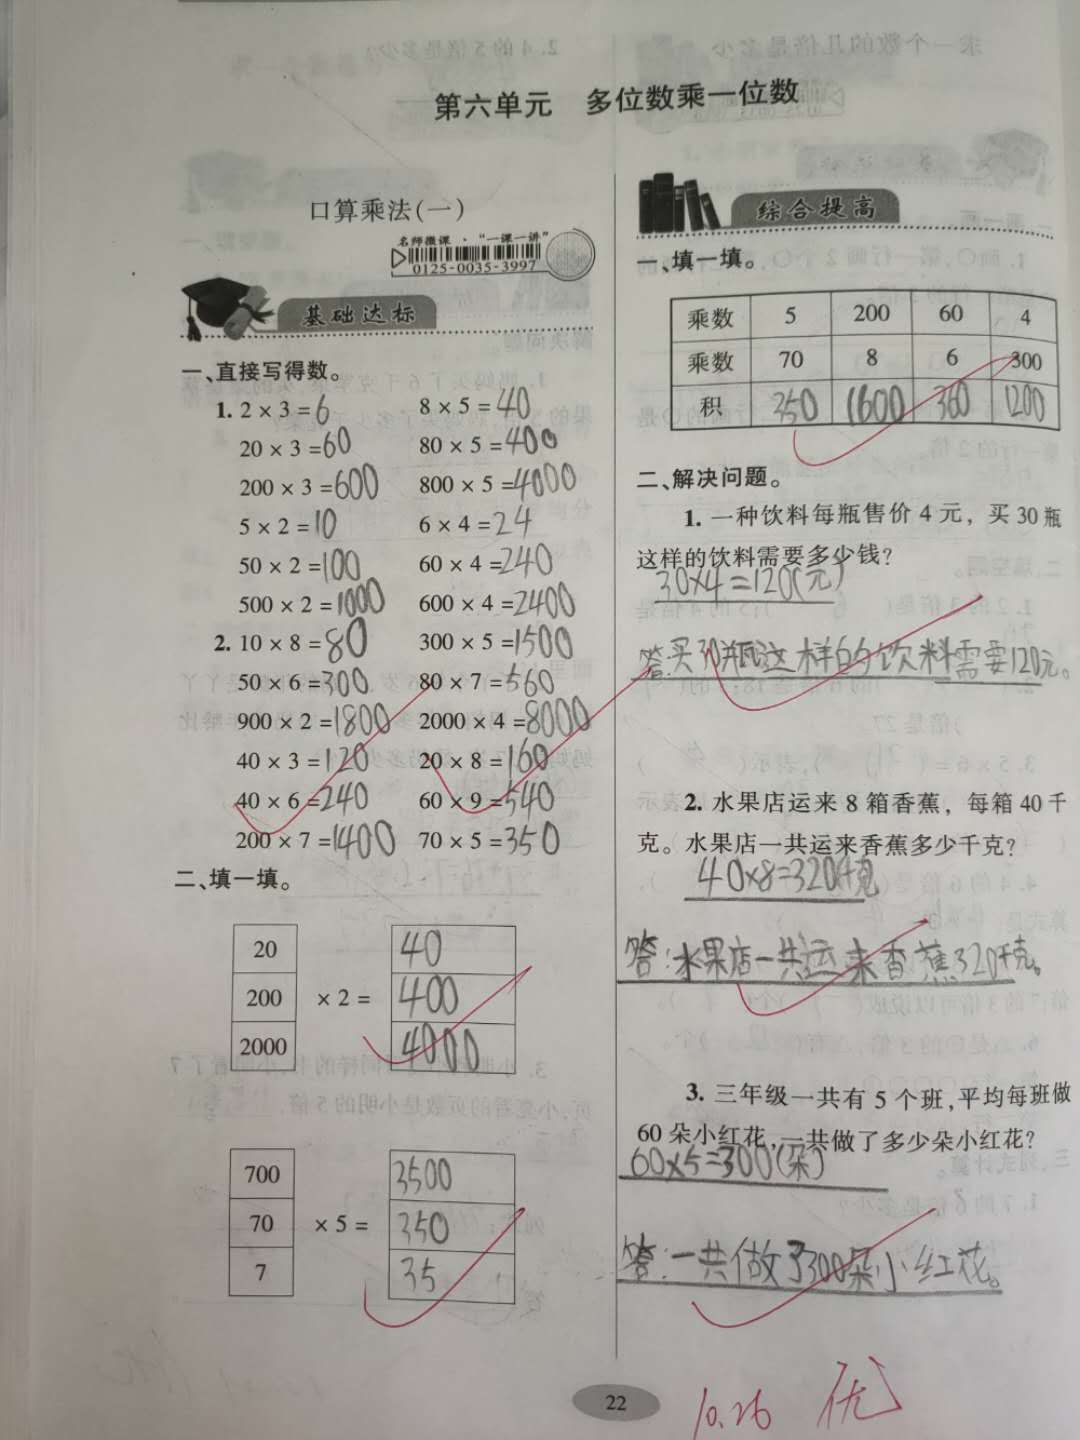 第六单元 多位数乘一位数
口算乘法(一)
名师微课·“一课一讲”
0125-0035-3997
基础达标
一、直接写得数。
1. 2×3=6 8×5=40
20×3=60 80×5=400
200×3=600 800×5=4000
5×2=10 6×4=24
50×2=100 60×4=240
500×2=1000 600×4=2400
2. 10×8=80 300×5=1500
50×6=300 80×7=560
900×2=1800 2000×4=8000
40×3=120 20×8=160
40×6=240 60×9=540
200×7=1400 70×5=350
二、填一填。
20 40
200 ×2= 400
2000 4000
700 3500
70 ×5= 350
7 35
综合提高
一、填一填。
乘数 5 200 60 4
乘数 70 8 6 300
积 350 1600 360 1200
二、解决问题。
1. 一种饮料每瓶售价 4 元，买 30 瓶
这样的饮料需要多少钱?
30×4=120(元)
答:买30瓶这样的饮料需要120元。
2. 水果店运来 8 箱香蕉，每箱 40 千
克。水果店一共运来香蕉多少千克?
40×8=320千克
答:水果店一共运来香蕉320千克。
3. 三年级一共有 5 个班,平均每班做
60 朵小红花,一共做了多少朵小红花?
60×5=300(朵)
答:一共做了300朵小红花。
22
10.26 优